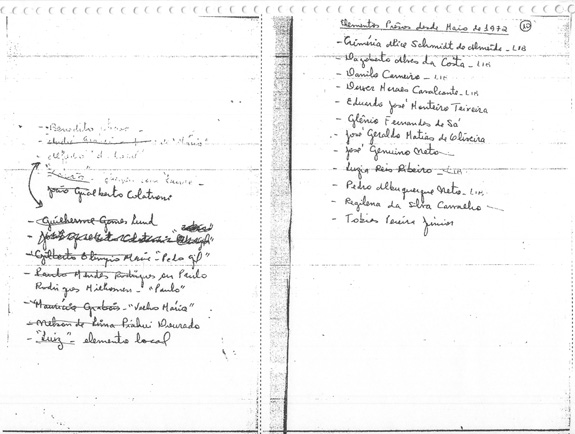 - Benedito
-
-
-
João Gualberto Calatroni
- Guilherme Gomes Lund
-
- Gilberto Olimpio Maria - "Pedro Gil"
- Paulo Mendes Rodrigues ou Paulo
Rodrigues Milhomens - "Paulo"
- Maurício Grabois - "Velho Mário"
- Nelson de Lima Piahui Dourado
- "Luiz" - elemento local
Elementos Presos desde Maio de 1972
- Criméria Alice Schmidt de Almeida - LIB
- Dagoberto Alves da Costa - LIB
- Danilo Carneiro - LIB
- Dower Moraes Cavalcante - LIB
- Eduardo José Monteiro Teixeira
- Glênio Fernandes de Sá
- José Geraldo Matias de Oliveira
- José Genuino Neto
- Lúgia Reis Ribeiro - LIB
- Pedro Albuquerque Neto - LIB
- Regilena da Silva Carvalho
- Tobias Pereira Júnior